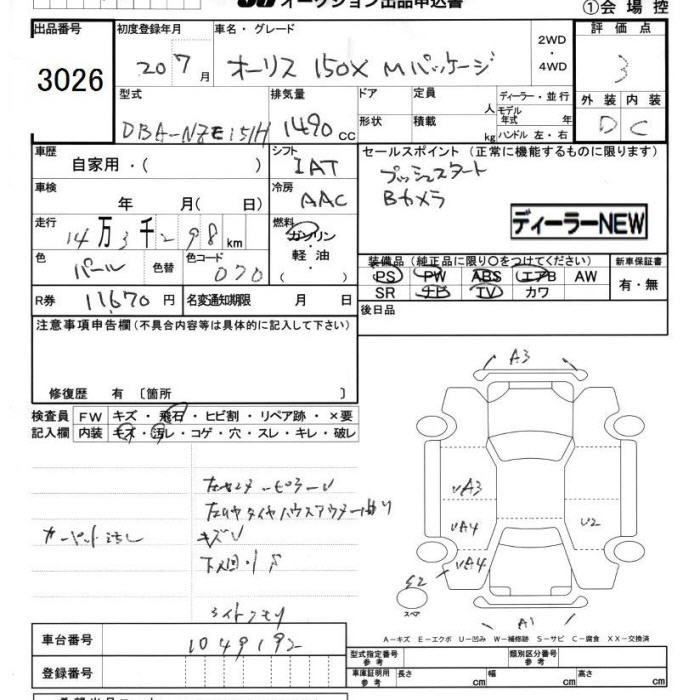 オークション出品申込書
①会場控
出品番号
3026
初度登録年月
20 7月
車名・グレード
オーリス 150X Mパッケージ
2WD
・
4WD
評価点
3
外装 内装
D C
型式
DBA-NZE151H
排気量
1490cc
ドア
形状
定員 人
積載 kg
ディーラー・並行
モデル年式 年
ハンドル 左・右
車歴
自家用・( )
シフト
IAT
セールスポイント (正常に機能するものに限ります)
プッシュスタート
Bカメラ
ディーラーNEW
車検
年 月( 日)
冷房
AAC
走行
14万3千298km
燃料
ガソリン
・
軽油
・
( )
色
パール
色替
色コード
070
装備品 (純正品に限り〇をつけてください)
PS PW ABS エアB AW
SR ナビ TV カワ
新車保証書
有・無
R券 11,670円
名変通知期限 月 日
後日品
注意事項申告欄(不具合内容等は具体的に記入して下さい)
修復歴 有 〔箇所 〕
検査員記入欄
FW キズ・飛石・ヒビ割・リペア跡・×要
内装 キズ・汚レ・コゲ・穴・スレ・キレ・破レ
カーペット汚レ
キズU
ライトクモリ
A3
UA3
UA4
U2
UA4
S2
スペア
A1
A−キズ E−エクボ U−凹み W−補修跡 S−サビ C−腐食 XX−交換済
車台番号
1049192
登録番号
型式指定番号
参考
類別区分番号
参考
車庫証明用
参考
長さ cm
幅 cm
高さ cm